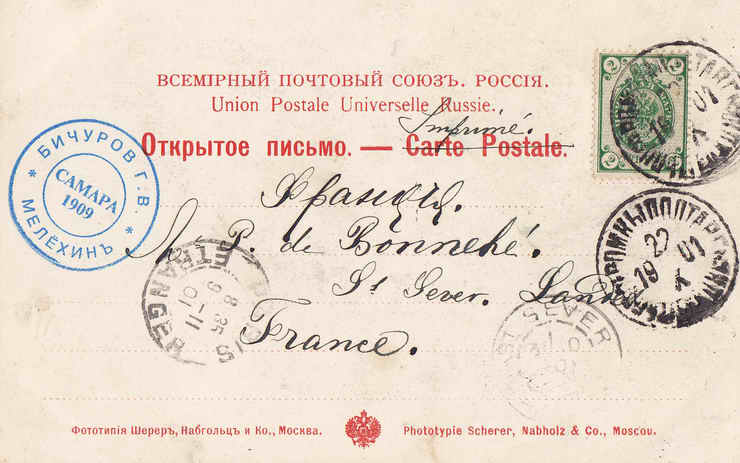 ВСЕМІРНЫЙ ПОЧТОВЫЙ СОЮЗЪ. РОССІЯ.
Union Postale Universelle Russie.
Imprimé.
Открытое письмо. — Carte Postale.
2 2
БИЧУРОВ Г.В.
САМАРА
1909
МЕЛЁХИНЪ
Франція.
P. de Bonnehé.
St Sever. Landes
France.
27
19 01
X
PARIS
8 35
9-11
01
ETRANGER
ST SEVER
Фототипія Шереръ, Набгольцъ и Ко., Москва.
Phototypie Scherer, Nabholz & Co., Moscou.